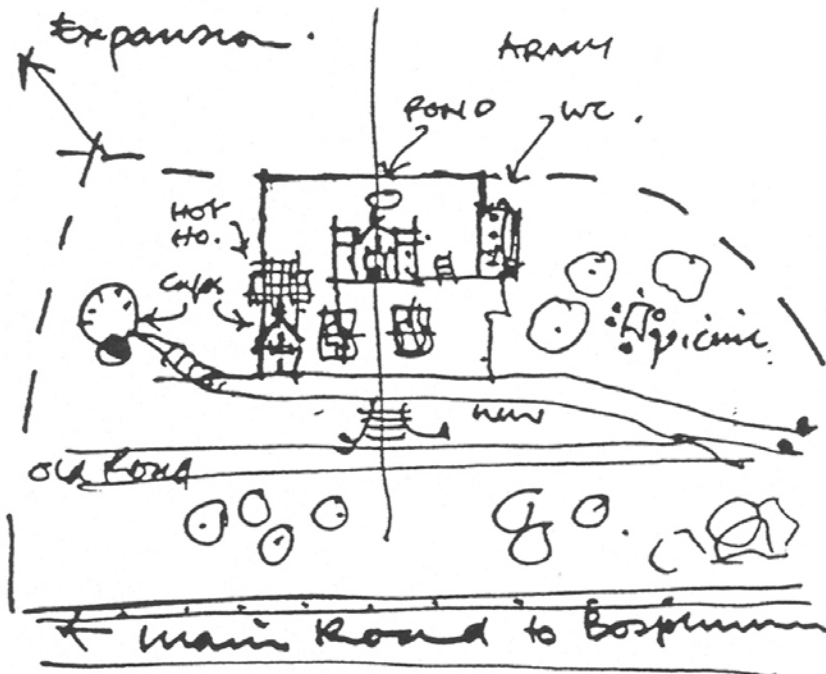 Expansion.
ARMY
POND
WC.
HOT
HO.
Cafe
picnic
new
Old Road
← Main Road to Bosphorus